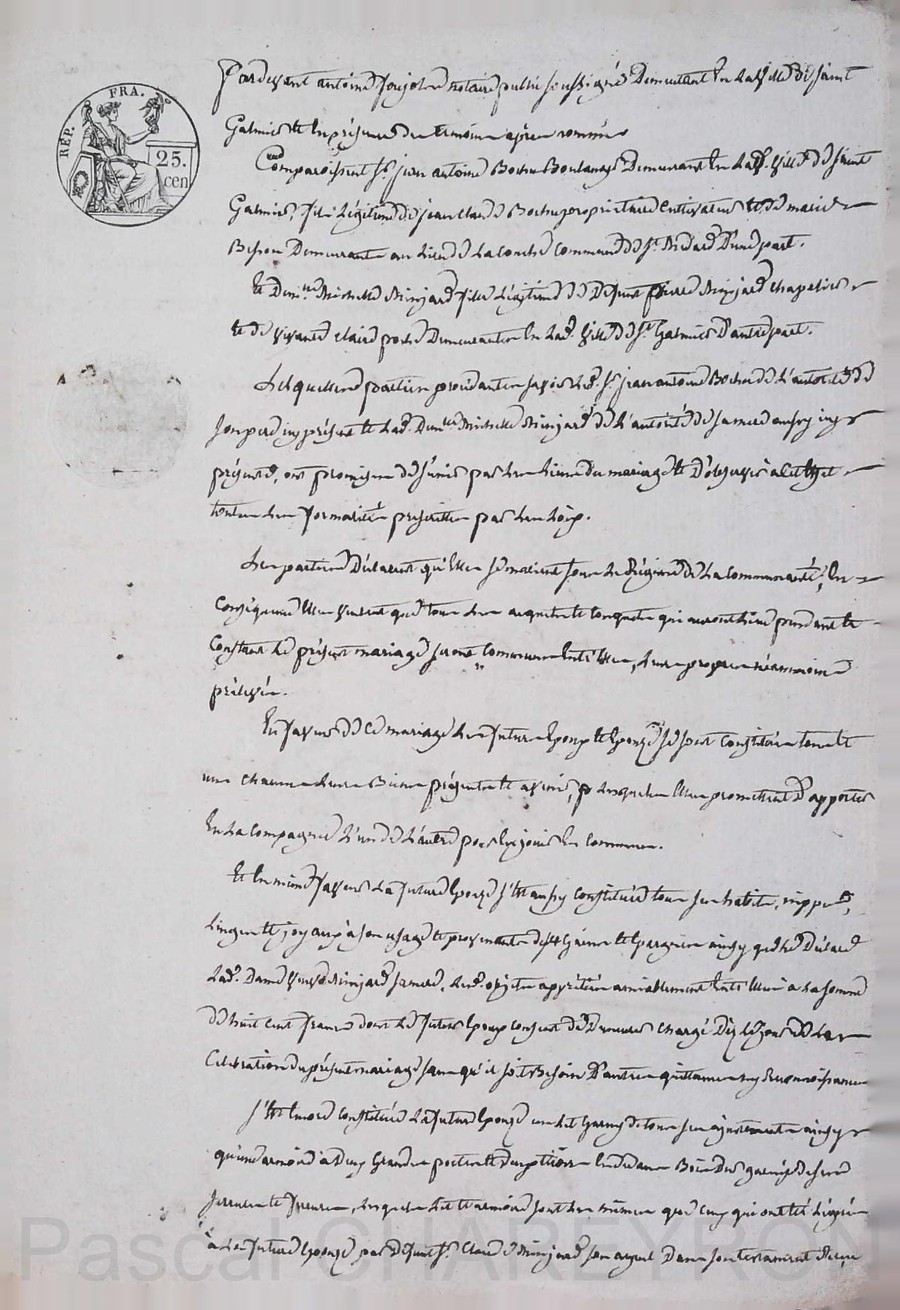 RÉP. FRA.
25.
cen
Pardevant antoine notaire public soussigné Demeurant En La ville de saint
Galmier Et En présence des temoins après nommés
Comparoissent Sr. jean antoine Boulanger Demeurant En Lad. ville de saint
Galmier, fils Légitime de jean Claude propriétaire cultivateur Et de marie
Besson Demeurants au Lieu de La Conche Commune de St. Médard D'une part.
Et Demlle. Michelle fille Légitime de Défunt pierre chapelier
Et de vivante claire Demeurantes En Lad. ville de St. Galmier D'autre part.
Lesquelles parties procédantes savoir Led. Sr. jean antoine de L'autorité de
son père icy présent Et Lad. Demlle Michelle de L'autorité de sa mère aussy icy
présente, ont promis de s'unir par Les Liens du mariage Et D'observer à cet effet
toutes Les formalités prescrittes par Les Loix.
Les parties Déclarent qu'Elles se marient sous Le Régime de La Communauté, En
Conséquence Elles veulent que tous Les acquets Et Conquets qui auront Lieu pendant Et
Constant Le présent mariage seront Communs Entr'Elles, Leurs propres néanmoins
prélevés.
En faveur de Ce mariage Les futurs Epoux Et Epouse se sont Constitués tous Et
un chacun Leurs Biens présents Et avenir, Lesquels Elles promettent D'apporter
En La Compagnie L'un de L'autre pour En jouir En Commun.
Et En même faveur La future Epouze s'Est aussy Constituée tous ses habits, nippes,
Linges Et joyaux à son usage Et provenants de ses Gains Et Epargnes ainsy que Le Déclare
Lad. Dame veuve sa mère, Lesd. objets appréciés amiablement Entr'Elles à La somme
de huit cent francs dont Le futur Epoux consent de Demeurer chargé Dès Le jour de La
Celebration du présent mariage sans qu'il soit Besoin D'autres quittances ny Reconnoissances
S'Est Encore Constituée La future Epouze un Lit Garny de tous ses ajustements ainsy
qu'une armoire à Deux Grandes portes Et Bois Dur garnie de ses
serrures Et ferrures, Lesquels Lit Et armoire sont Les mêmes que Ceux qui ont été Légués
à La future Epouze par Défunt Sr. Claude son ayeul Dans son testament Reçu
Pascal CHAREYRON